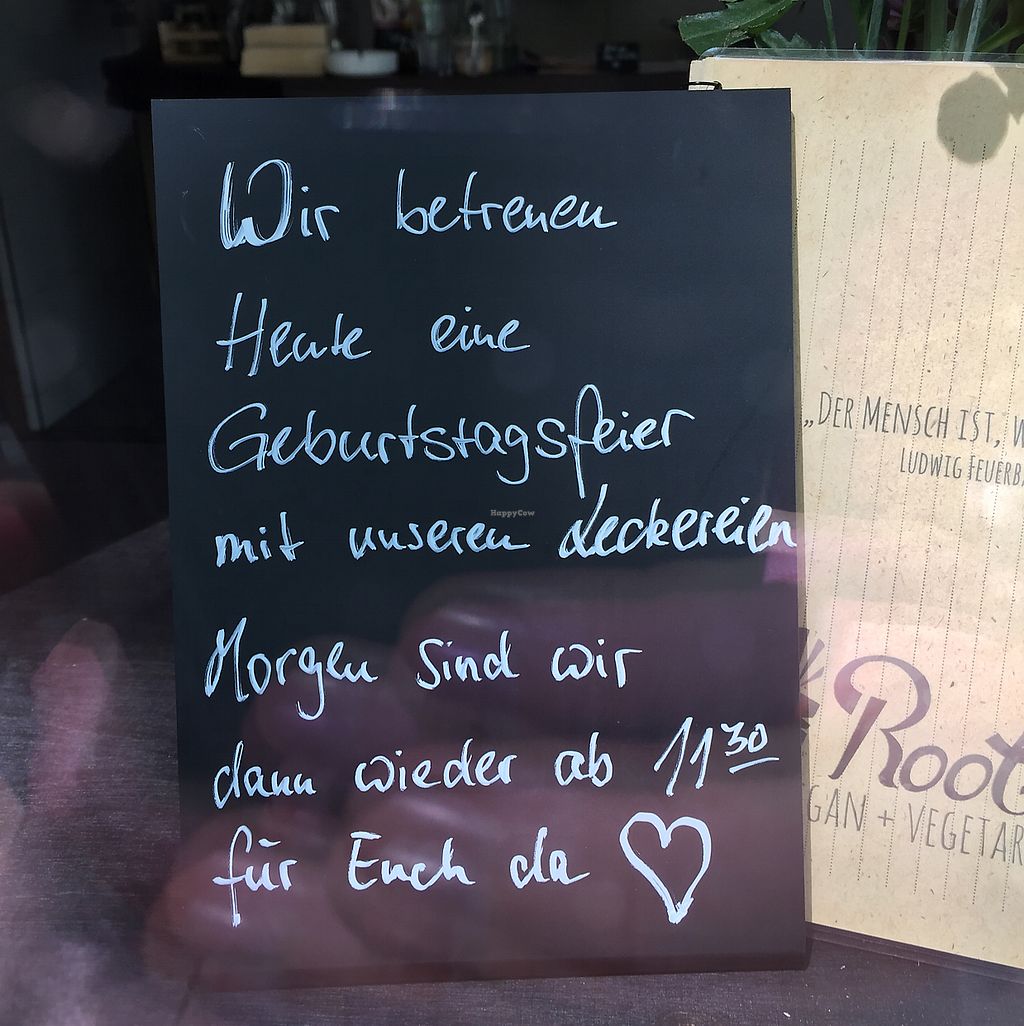 Wir betreuen
Heute eine
Geburtstagsfeier
mit unseren Leckereien
HappyCow
Morgen sind wir
dann wieder ab 11 30
für Euch da ♡
„DER MENSCH IST, W
LUDWIG FEUERBA
Root
GAN + VEGETAR